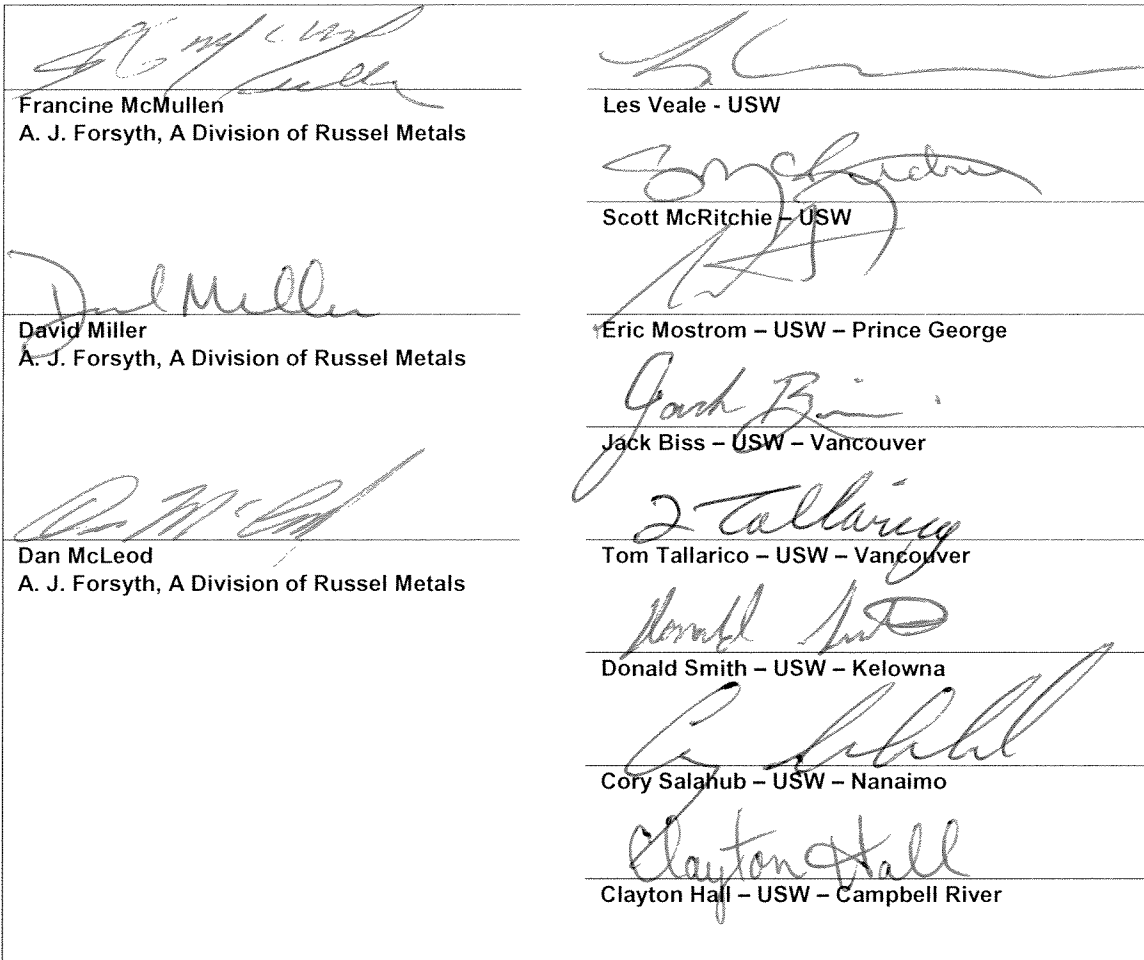 Francine McMullen
A. J. Forsyth, A Division of Russel Metals
David Miller
David Miller
A. J. Forsyth, A Division of Russel Metals
Dan McLeod
A. J. Forsyth, A Division of Russel Metals
Les Veale - USW
Scott McRitchie – USW
Eric Mostrom – USW – Prince George
Jack Biss – USW – Vancouver
Tom Tallarico – USW – Vancouver
Donald Smith – USW – Kelowna
Cory Salahub – USW – Nanaimo
Clayton Hall
Clayton Hall – USW – Campbell River